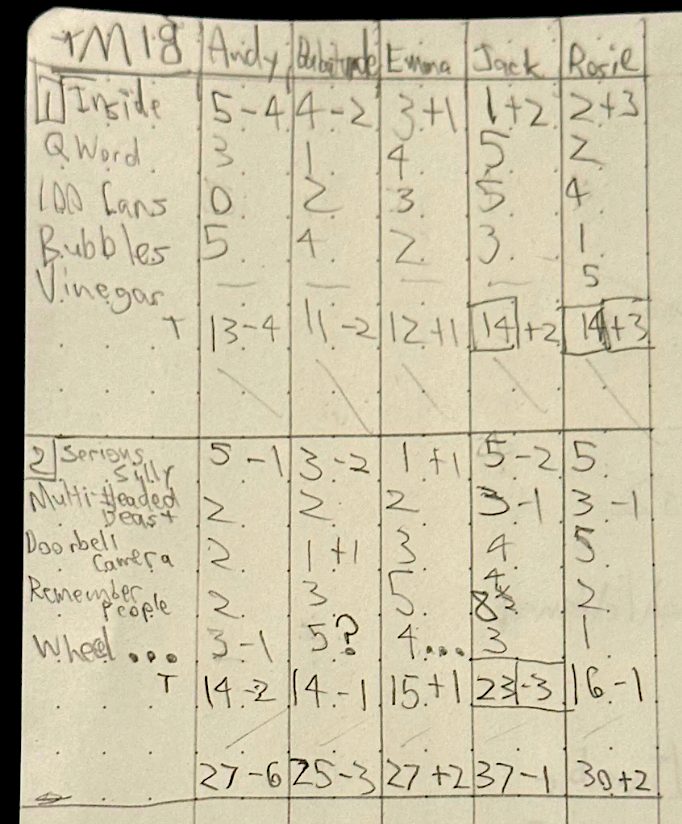 TM18 Andy Babatunde Emma Jack Rosie
1 Inside 5-4 4-2 3+1 1+2 2+3
Q Word 3 1 4 5 2
100 Cans 0 2 3 5 4
Bubbles 5 4 2 3 1
Vinegar — — — — 5
T 13-4 11-2 12+1 14+2 14+3
2 Serious Silly 5-1 3-2 1+1 5-2 5
Multi-Headed Beast 2 2 2 3-1 3-1
Doorbell Camera 2 1+1 3 4 5
Remember People 2 3 5 8 2
Wheel... 3-1 5? 4... 3 1
T 14-2 14-1 15+1 23-3 16-1
27-6 25-3 27+2 37-1 30+2